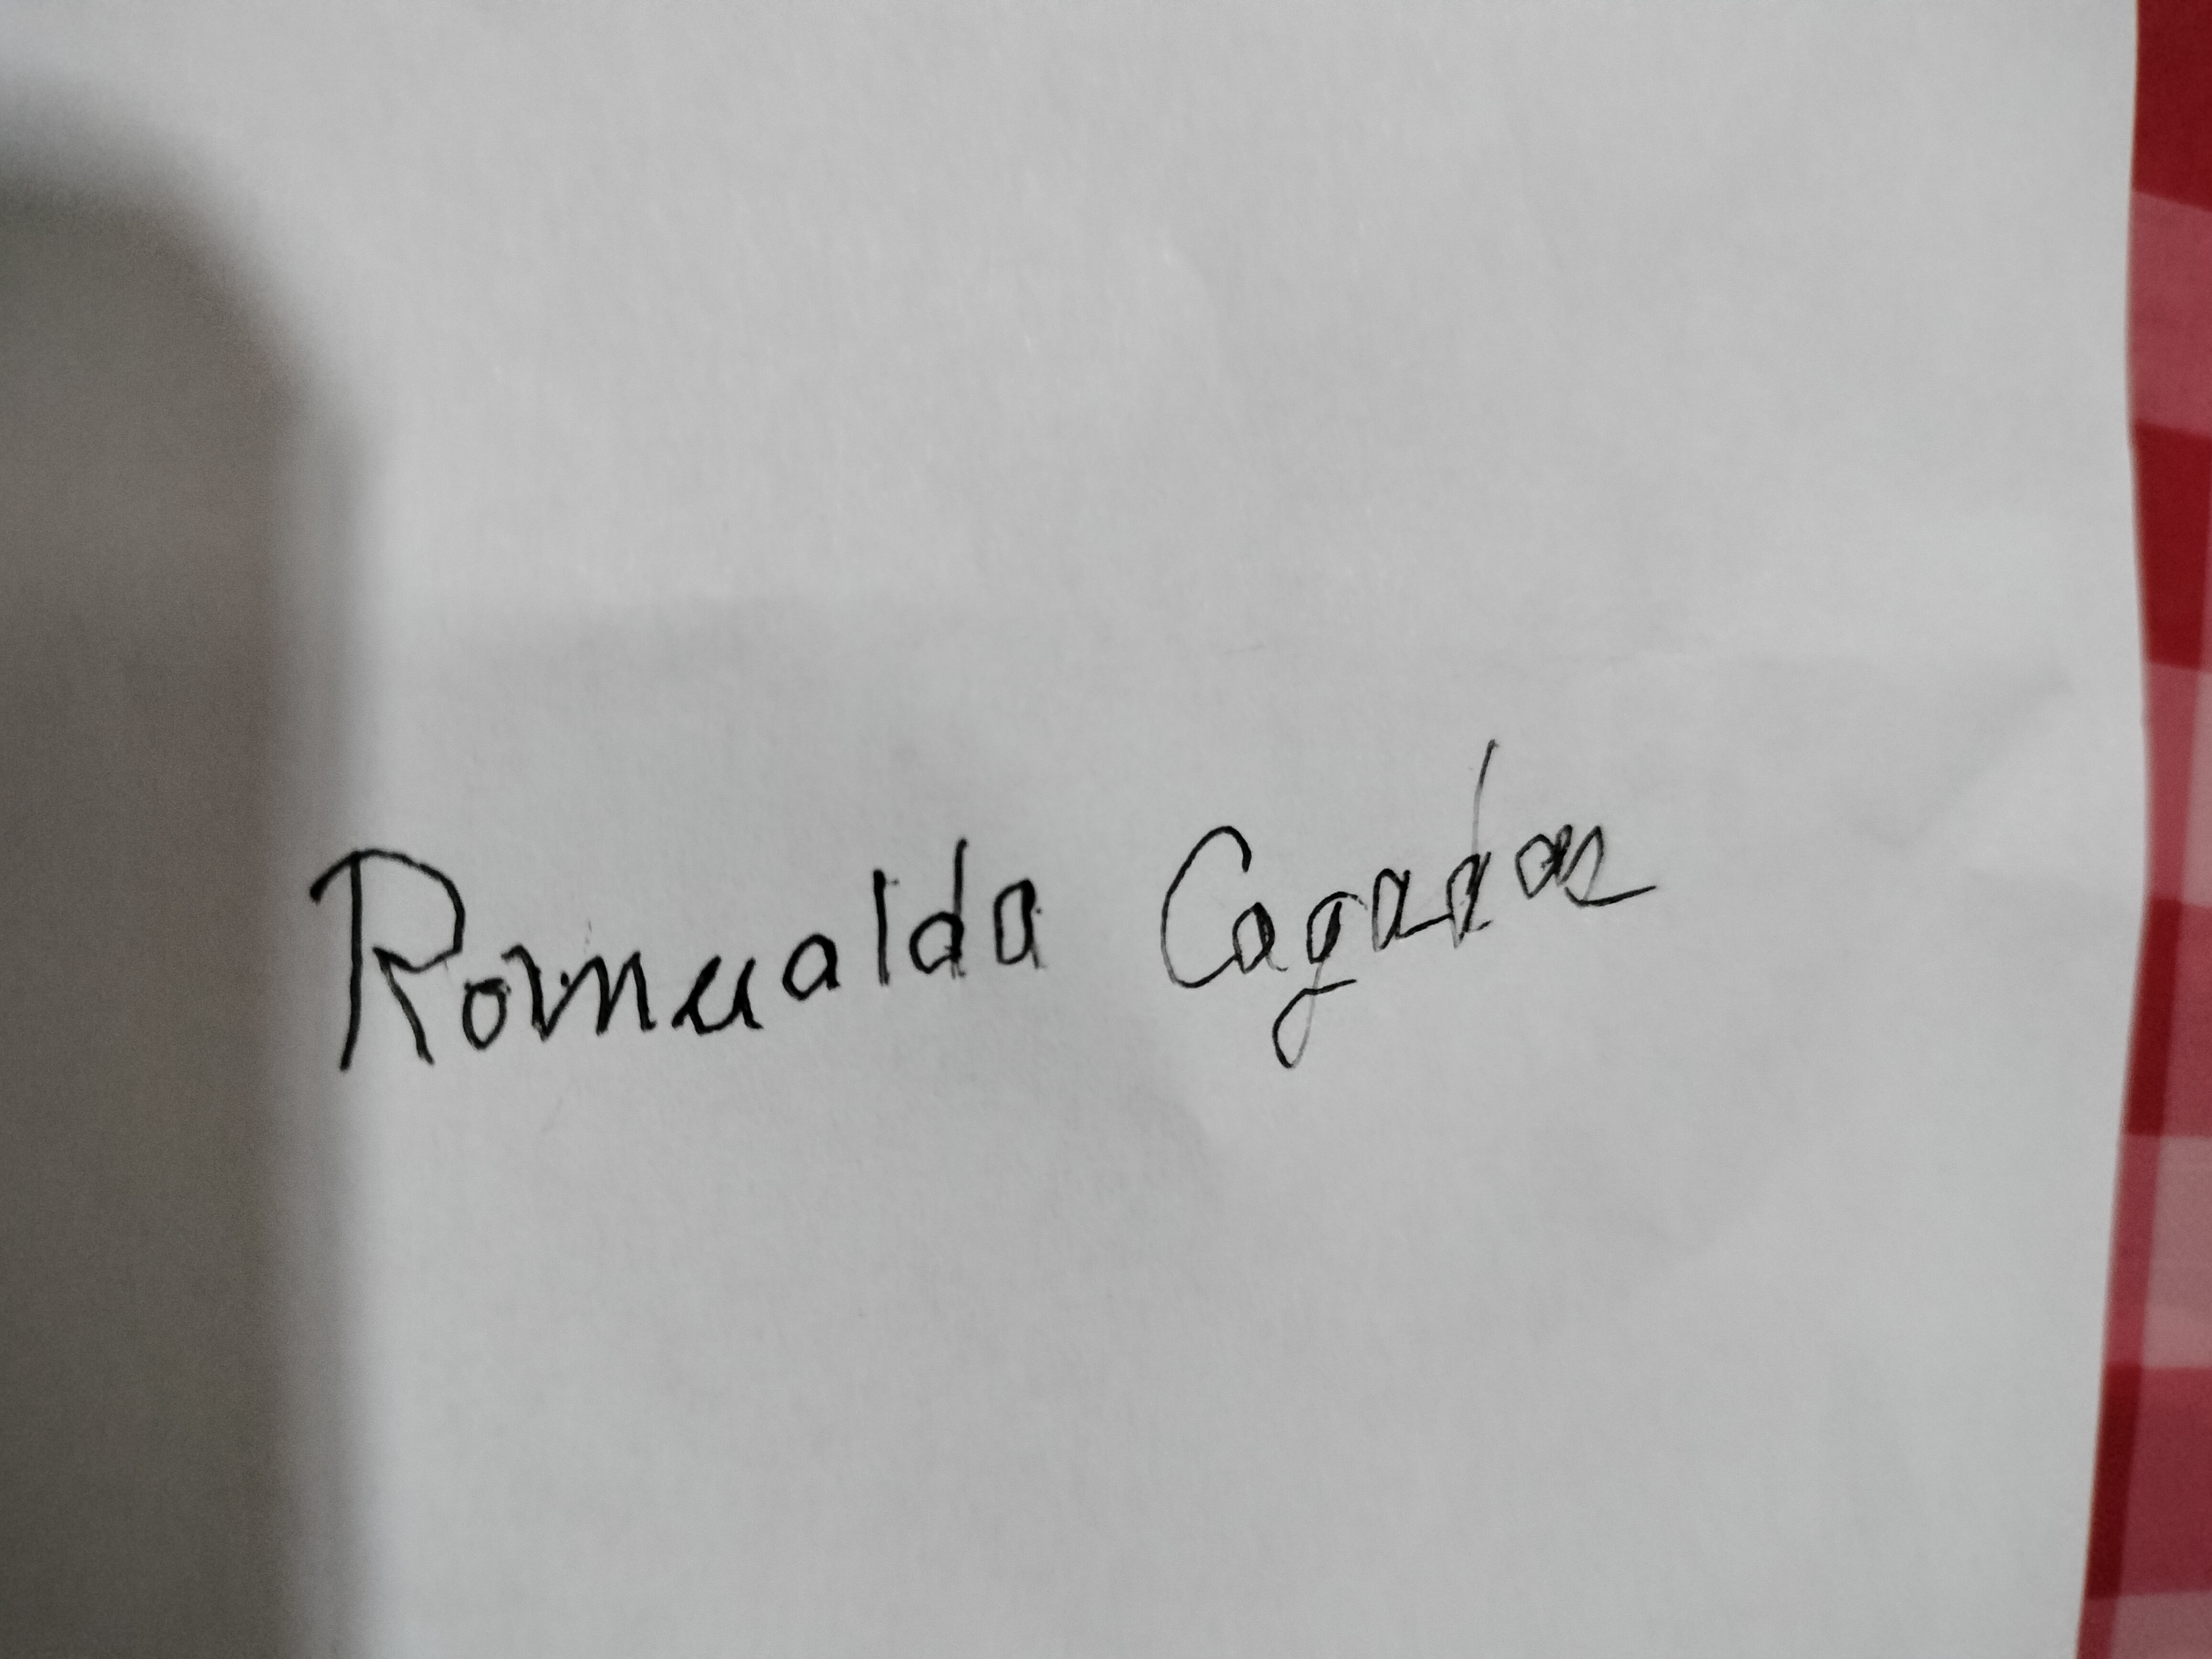 Romualda Cagadas